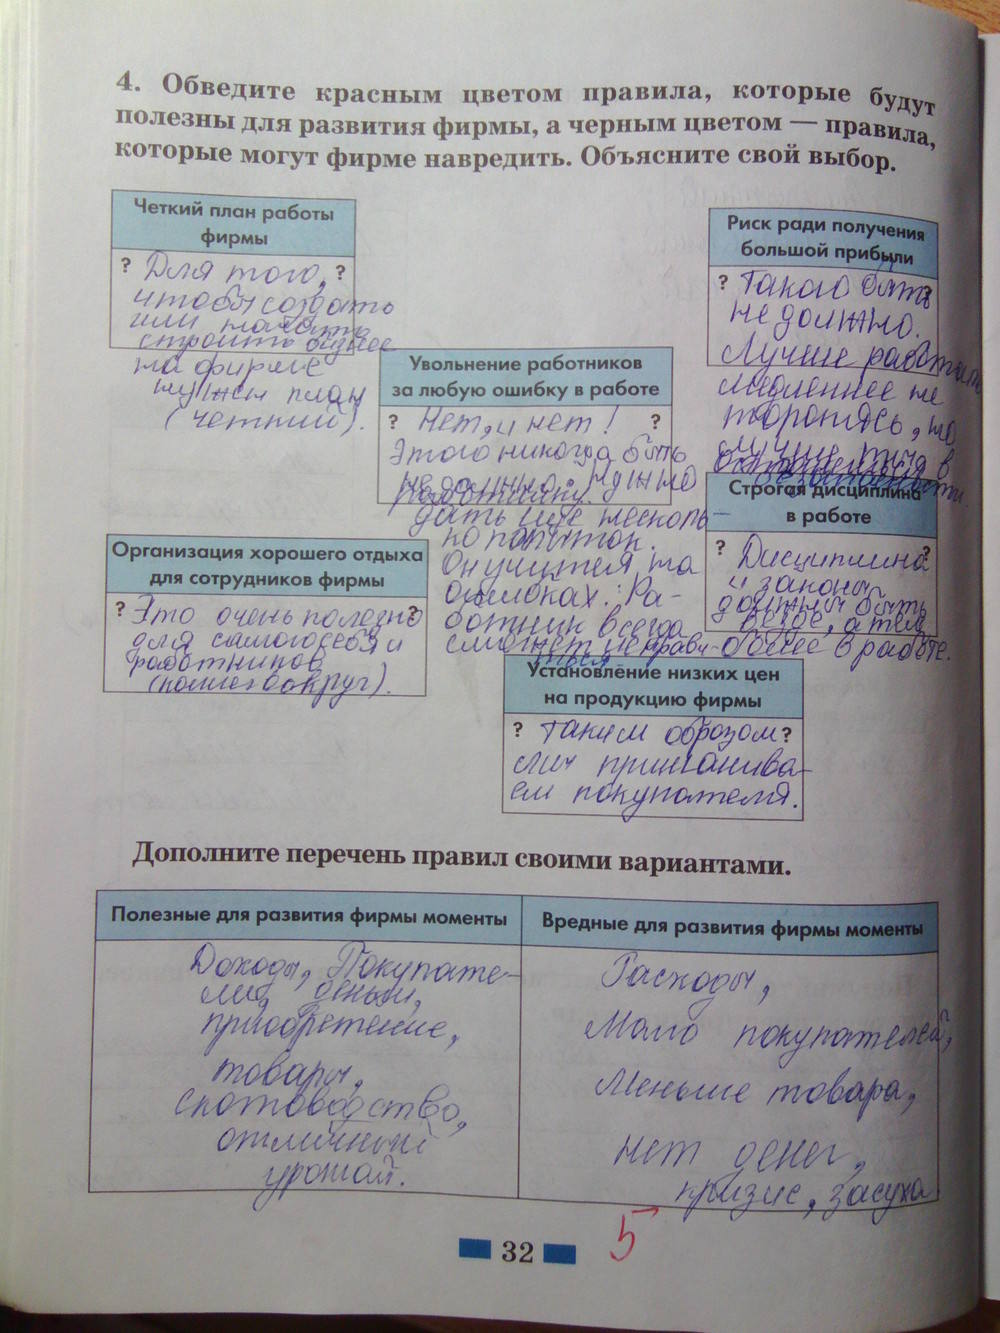 4. Обведите красным цветом правила, которые будут
полезны для развития фирмы, а черным цветом — правила,
которые могут фирме навредить. Объясните свой выбор.
Четкий план работы
фирмы
? Для того, ?
чтобы создать
или начать
строить бизнес
на фирме
нужен план
(четкий).
Риск ради получения
большой прибыли
? Такого быть ?
не должно.
Лучше работать
медленнее не
торопясь, но
лучше
Увольнение работников
за любую ошибку в работе
? Нет, и нет! ?
Этого никогда быть
не должно. Нужно
работнику
дать еще несколь-
ко попыток.
Он учится на
ошибках. Ра-
ботник всегда
сможет исправи-
ться
Строгая дисциплина
в работе
? Дисциплина ?
и законы
должны быть
везде, а тем
более в работе.
Организация хорошего отдыха
для сотрудников фирмы
? Это очень полезно ?
для самого себя и
работников
вокруг).
Установление низких цен
на продукцию фирмы
? таким образом ?
мы приманива-
ем покупателя.
Дополните перечень правил своими вариантами.
Полезные для развития фирмы моменты
Доходы, Покупате-
ли, деньги,
приобретение,
товары,
скотоводство,
отличный
урожай.
Вредные для развития фирмы моменты
Расходы,
Мало покупателей,
Меньше товара,
нет денег,
кризис, засуха
32
5